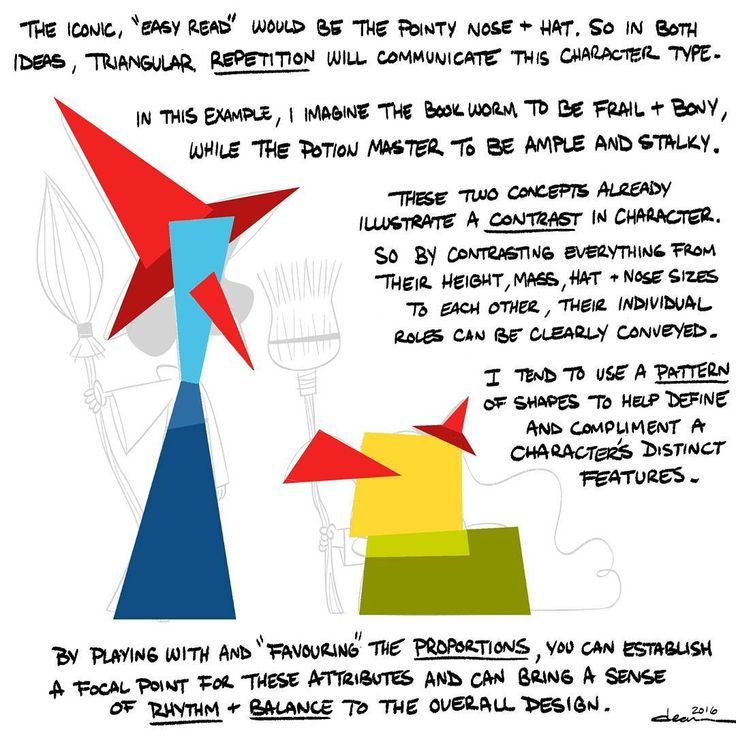 THE ICONIC, "EASY READ" WOULD BE THE POINTY NOSE + HAT. SO IN BOTH
IDEAS, TRIANGULAR REPETITION WILL COMMUNICATE THIS CHARACTER TYPE.
IN THIS EXAMPLE, I IMAGINE THE BOOKWORM TO BE FRAIL + BONY,
WHILE THE POTION MASTER TO BE AMPLE AND STALKY.
THESE TWO CONCEPTS ALREADY
ILLUSTRATE A CONTRAST IN CHARACTER.
SO BY CONTRASTING EVERYTHING FROM
THEIR HEIGHT, MASS, HAT + NOSE SIZES
TO EACH OTHER, THEIR INDIVIDUAL
ROLES CAN BE CLEARLY CONVEYED.
I TEND TO USE A PATTERN
OF SHAPES TO HELP DEFINE
AND COMPLIMENT A
CHARACTER'S DISTINCT
FEATURES.
BY PLAYING WITH AND "FAVOURING" THE PROPORTIONS, YOU CAN ESTABLISH
A FOCAL POINT FOR THESE ATTRIBUTES AND CAN BRING A SENSE
OF RHYTHM + BALANCE TO THE OVERALL DESIGN.
2016